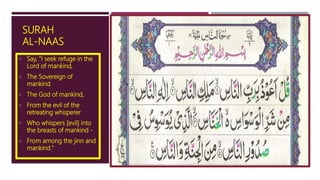 SURAH
AL-NAAS
Say, "I seek refuge in the
Lord of mankind,
The Sovereign of
mankind.
The God of mankind,
From the evil of the
retreating whisperer
Who whispers [evil] into
the breasts of mankind -
From among the jinn and
mankind."
بِسْمِ اللهِ الرَّحْمٰنِ الرَّحِيْمِ
قُلْ اَعُوْذُ بِرَبِّ النَّاسِ مَلِكِ النَّاسِ اِلٰهِ النَّاسِ
مِنْ شَرِّ الْوَسْوَاسِ الْخَنَّاسِ الَّذِيْ يُوَسْوِسُ فِيْ
صُدُوْرِ النَّاسِ مِنَ الْجِنَّةِ وَالنَّاسِ